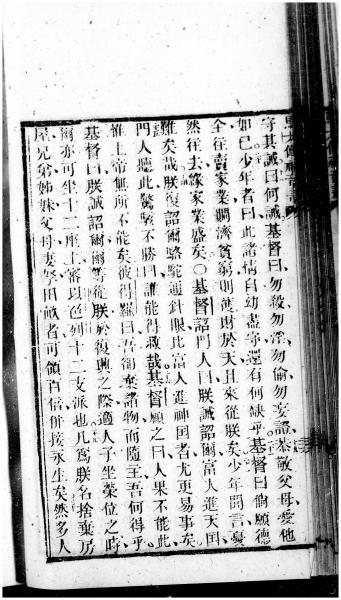 守其誡曰何誡基督曰勿殺勿淫勿偷勿妄證恭敬父母愛他
如己少年者曰此諸情自幼盡守還有何缺乎基督曰倘願德
全往賣家業賙濟貧窮則獲財於天且來從朕矣少年聞言憂
然往去緣家業盛矣〇基督謂門人曰朕誠詔爾富人進天国
難矣哉朕復詔爾駱駝通針眼比富人進神国者尤更易事矣
門人聽此驚駭不勝曰誰能得救哉基督顧之曰人果不能此
惟上帝無所不能矣彼得羅曰吾儕棄諸物而隨主吾何得乎
基督曰朕誠詔爾爾等從朕於復興之際適人子坐榮位之時
爾亦可坐十二座上審以色列十二支派也凡為朕名捨棄房
屋兄弟姊妹父母妻孥田畝者可領百倍併接永生矣然多人